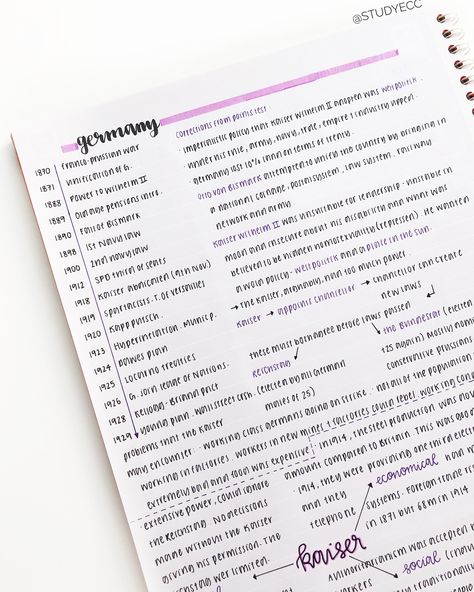 @STUDYECC
germany
1870 Franco-Prussian war
1871 Unification of G.
1888 Power to Wilhelm II
1889 Old age pensions intro.
1890 Fall of Bismark
1898 1st Navy law
1900 2nd Navy law
1912 SPD third of seats
1918 Kaiser abdication (9th Nov)
1919 Spartacists. T. of Versailles
1920 Kapp Putsch.
1923 Hyperinflation. Munich P.
1924 Dawes Plan
1925 Locarno Treaties
1926 G. join League of Nations.
1928 Kellogg-Briand Pact
1929 Young Plan. Wall Street crsh.
corrections from points test
· imperialistic policy that Kaiser Wilhelm II adopted was weltpolitik.
under his rule, army, navy, trade, empire + industry
Germany lost 10% land in terms of treaty.
Otto von Bismark attempted to unify the country by bringing in
a national coinage, postal system, law system, railway
network and army
Kaiser Wilhelm II was unsuitable for leadership - unstable in
mood and insecure about his disability and what was
believed to be hidden homosexuality (repressed). He wanted
a world policy - weltpolitik and a place in the sun.
→ the Kaiser, although, had too much power.
Kaiser → appoints chancellor → chancellor can create
new laws
these must both agree before laws passed
Reichstag
(elected by all German
males at 25)
the Bundesrat (elected
+25 again) mostly
conservative prussians
problems that the Kaiser
may encounter: · working class Germans going on strike. · not all of the population
working in factories. workers in new mines + factories could rebel. working
extremely bad and food was expensive.
· extensive power, could ignore
the Reichstag. No decisions
made without the Kaiser
giving his permission. The
Reichstag wer limited.
· in 1914, the steel production was
amount compared to Britain. This was
1914, they were providing one third
and they
telephone
systems. Foreign
in 1871 but 68m in 1914
economical
kaiser
social
authoritarianism was accepted
workers